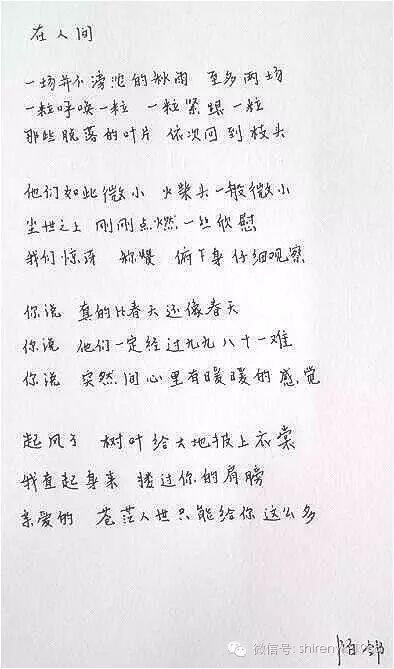 在人间
一场并不滂沱的秋雨 至多两场
一粒呼唤一粒 一粒紧跟一粒
那些脱落的叶片 依次回到枝头
他们如此微小 火柴头一般微小
尘世之上 刚刚点燃一丝欣慰
我们惊讶 称叹 俯下身仔细观察
你说 真的比春天还像春天
你说 他们一定经过九九八十一难
你说 突然间心里有暖暖的感觉
起风了 树叶给大地披上衣裳
我直起身来 搂过你的肩膀
亲爱的 苍茫人世只能给你这么多
微信号: shiren